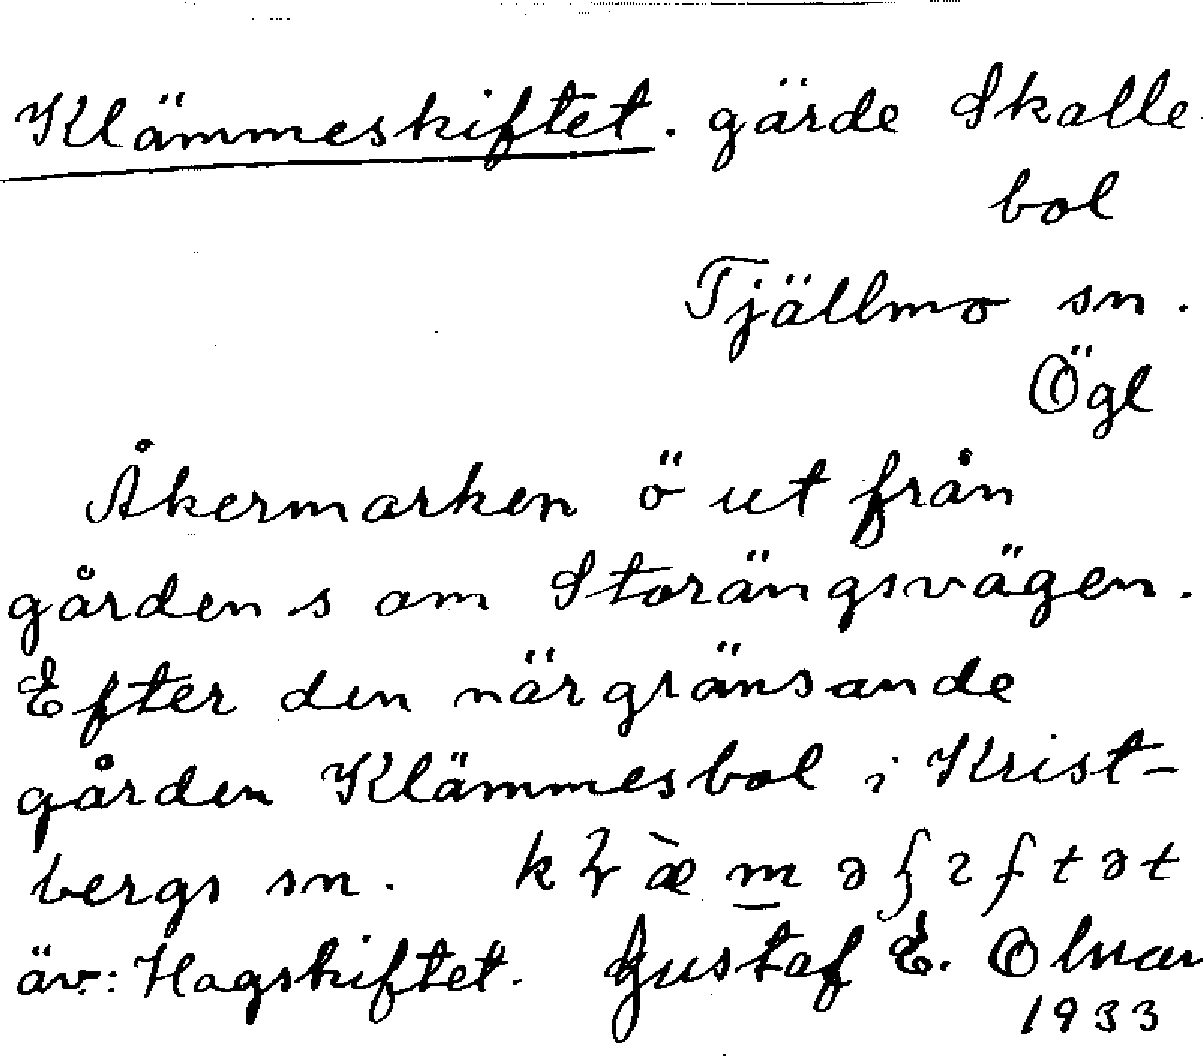 Klämmeskiftet. gärde Skalle-
bol
Tjällmo sn.
Ögl
Åkermarken ö ut från
gården s om Storängsvägen.
Efter den närgränsande
gården Klämmesbol i Krist-
bergs sn.
äv: Hagskiftet. Gustaf E.
1933